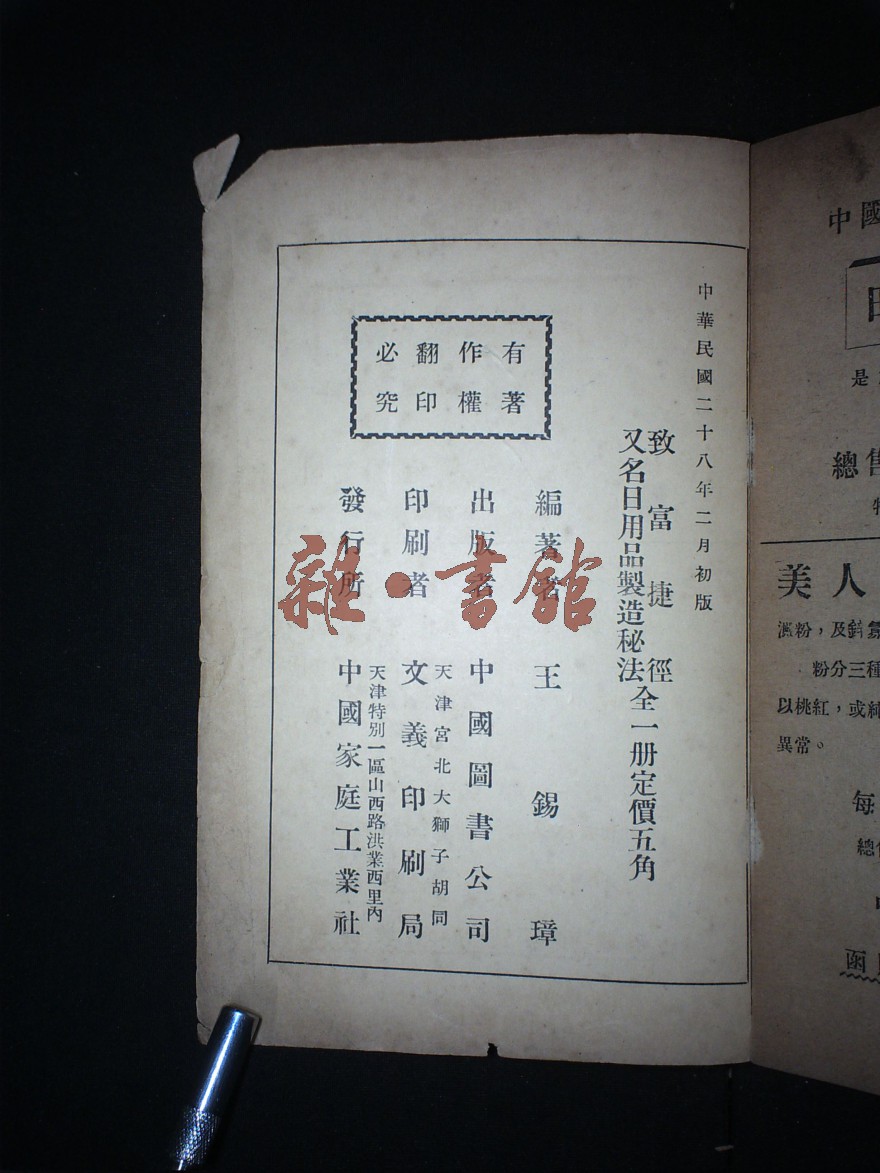 中華民國二十八年二月初版
致富捷徑
又名日用品製造秘法
全一册定價五角
有著作權
翻印必究
編著者 王錫璋
出版者 中國圖書公司
天津宮北大獅子胡同
印刷者 文義印刷局
天津特別一區山西路洪業西里內
發行所 中國家庭工業社
雜·書館
中國
是
總售
美人
粉,及
粉分三種
以桃紅,或純
異常。
每
總
函